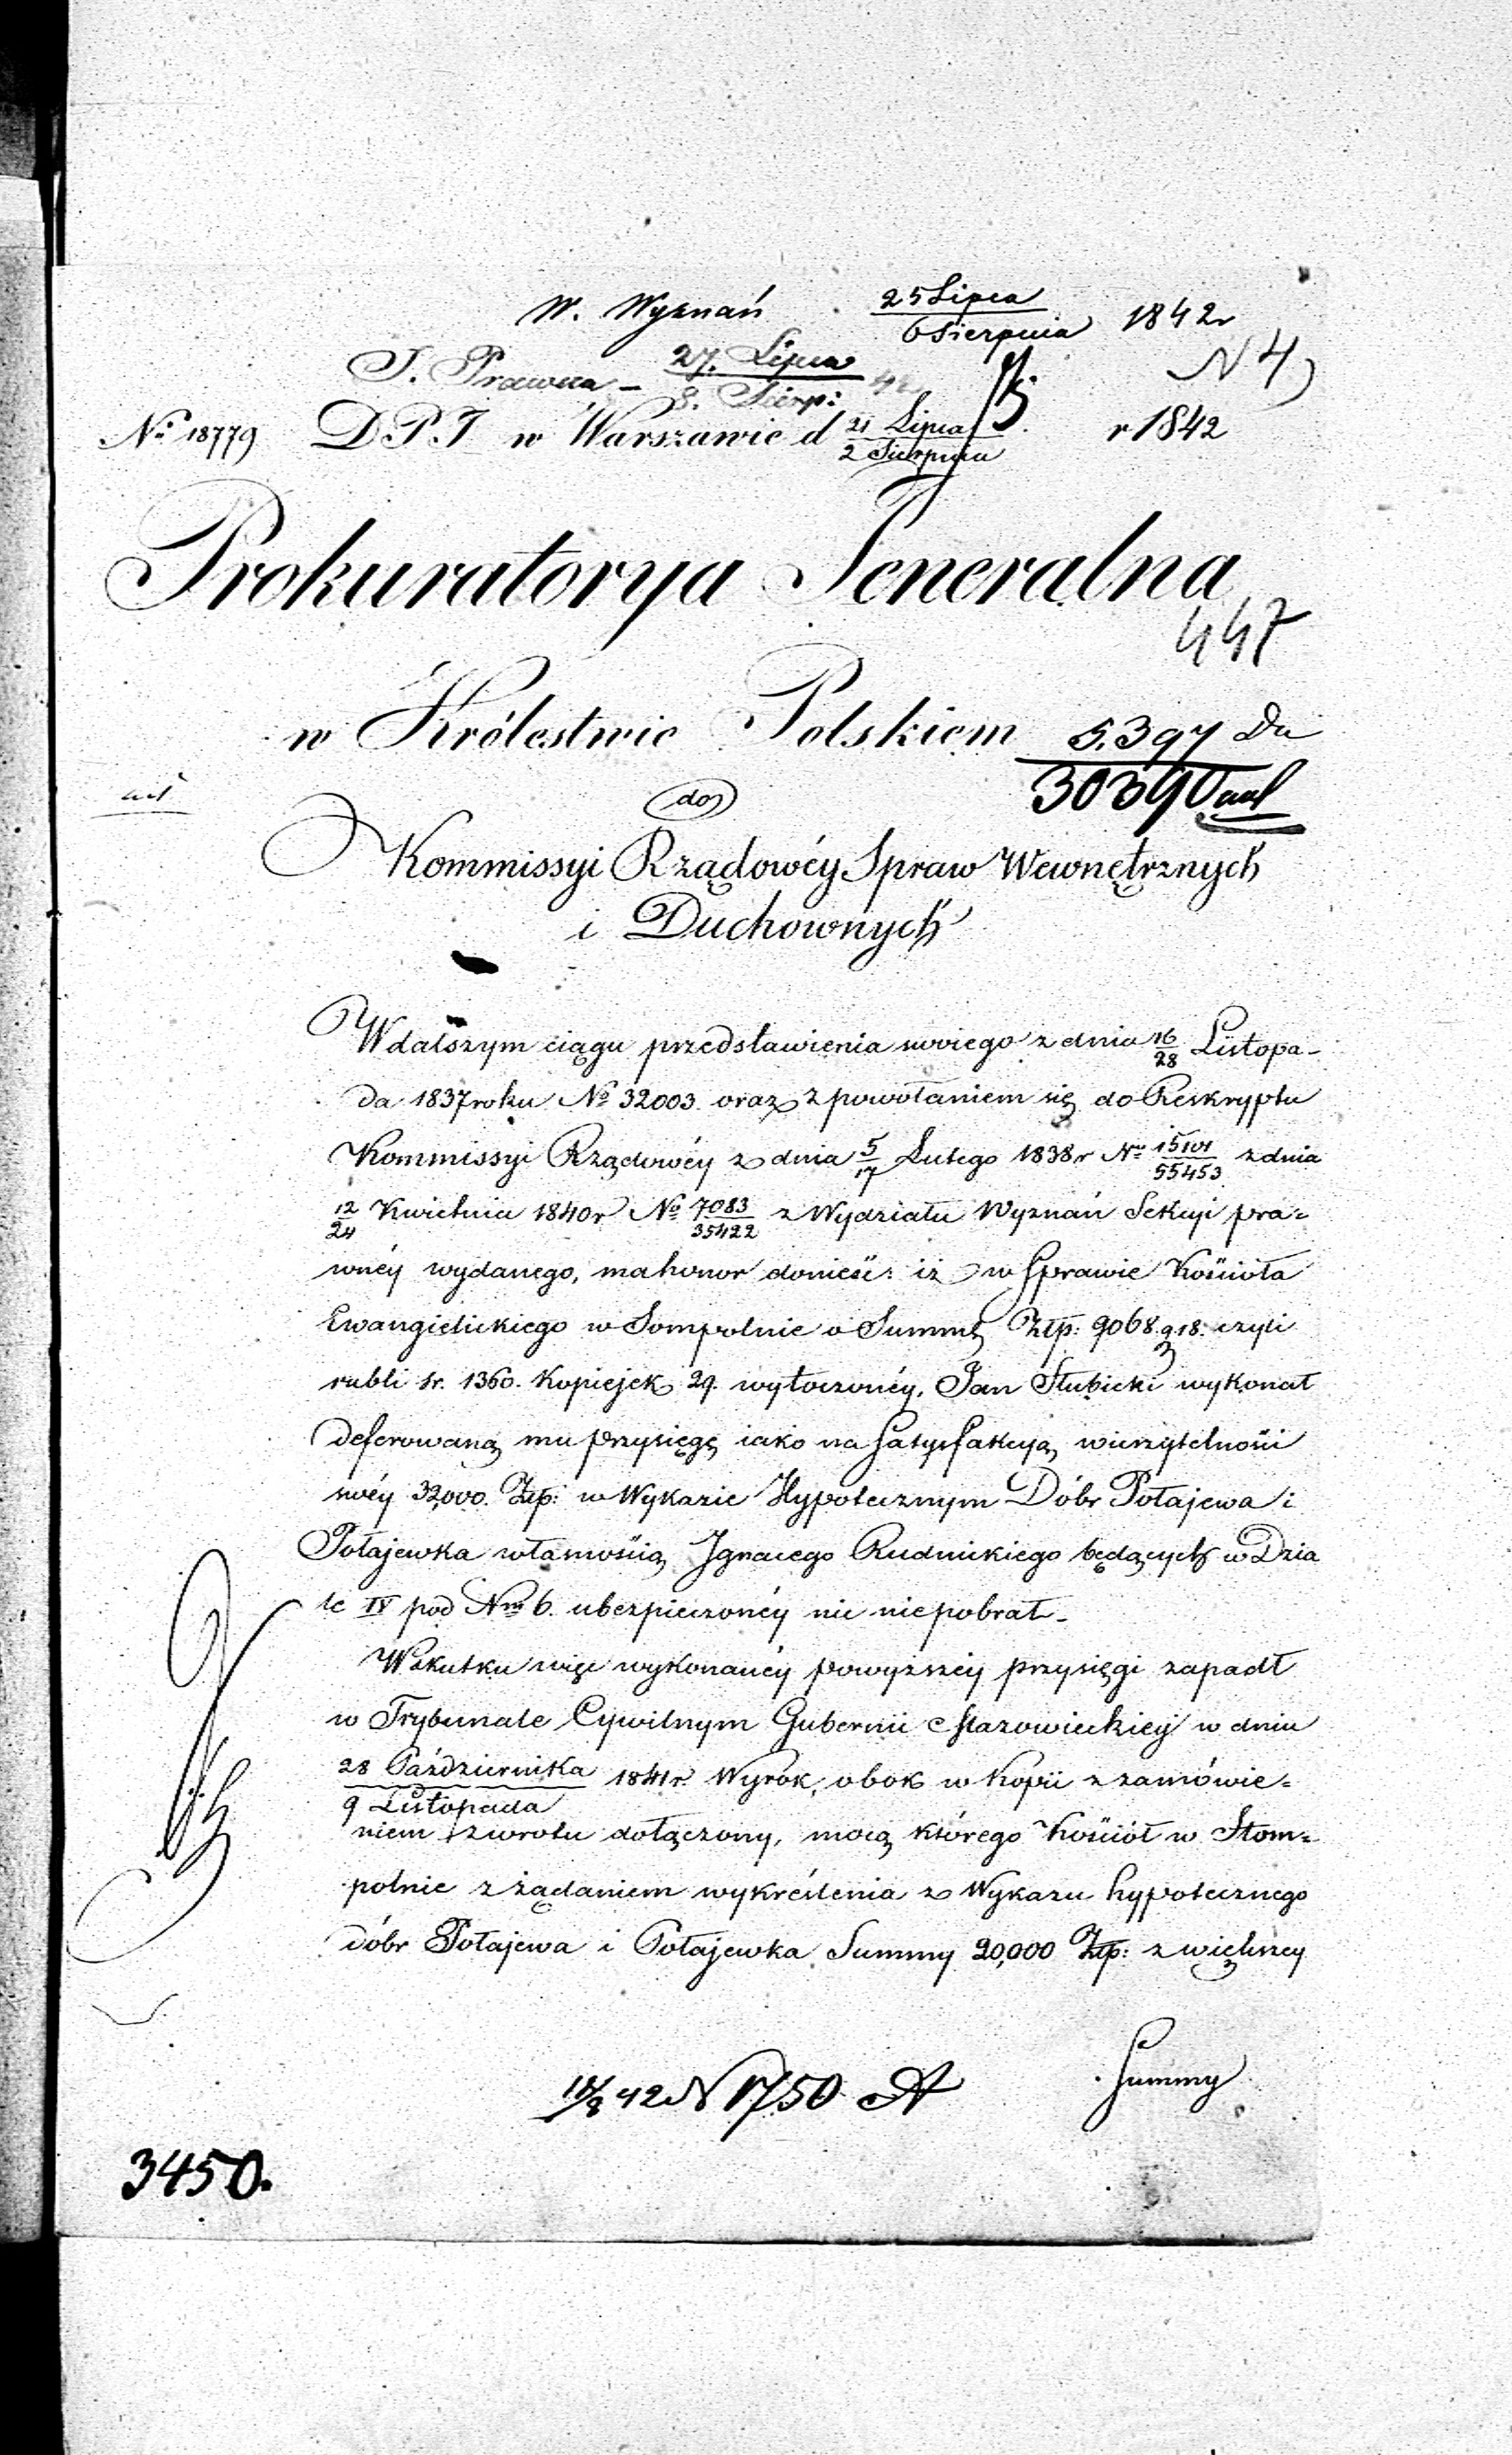 W. Wyznań 25 Lipca / 6 Sierpnia 1842r
S. Prawna – 27. Lipca / 8. Sierp: 42
N 4
No 18779 D.P.I w Warszawie d 21 Lipca / 2 Sierpnia r 1842
Prokuratorya Generalna
447
w Królestwie Polskiem
5.397 Du
30390
do
Kommissyi Rządowéy Spraw Wewnętrznych
i Duchownych
W dalszym ciągu przedstawienia swoiego z dnia 16/28 Listopa-
da 1837 roku No 32003 oraz z powołaniem się do Reskryptu
Kommissyi Rządowéy z dnia 5/17 Lutego 1838r Nr 15101/55453 z dnia
12/24 Kwietnia 1840r No 7083/35422 z Wydziału Wyznań Sekcyi pra=
wnéy wydanego, ma honor donieść: iż w Sprawie Kościoła
Ewangielickiego w Sompolnie o Summę Złp: 9068 g 18. czyli
rubli sr. 1360. Kopiejek 29. wytoczonéy, Jan Słubicki wykonał
deferowaną mu przysięgę iako na satysfakcyą wierzytelności
swéy 32000. Złp: w Wykazie Hypotecznym Dóbr Połajewa i
Połajewka własnością Ignacego Rudnickiego będących w Dzia
le IV pod Nrm 6. ubezpieczonéy nic niepobrał –
W skutku więc wykonanéy powyższéy przysięgi zapadł
w Trybunale Cywilnym Gubernii Mazowieckiéy w dniu
28 Października / 9 Listopada 1841r. Wyrok, obok w kopii z zamówie=
niem zwrotu dołączony, mocą którego Kościół w Stom=
polnie z żądaniem wykreślenia z Wykazu hypotecznego
dóbr Połajewa i Połajewka Summy 20,000 Złp: z większey
Summy
42 N 1750 A
3450.